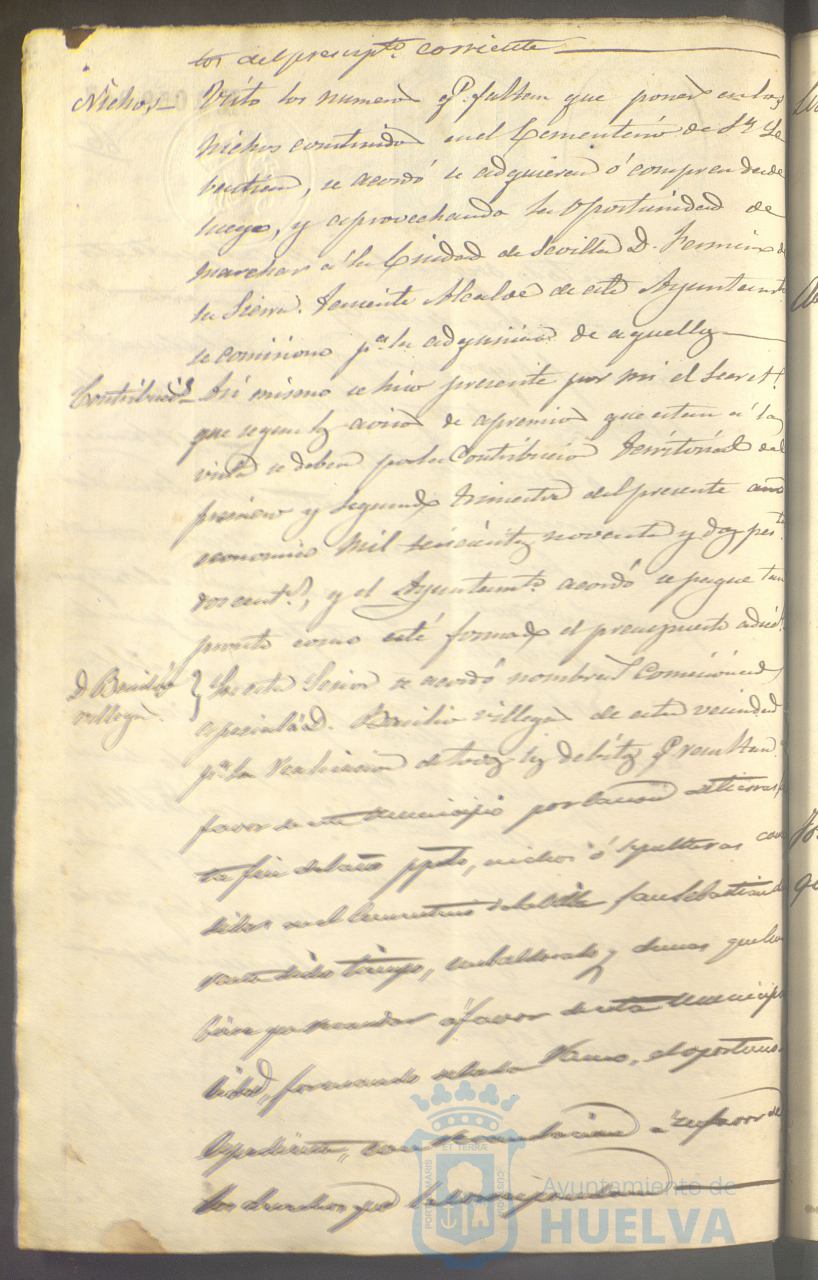 tos del presupto. corriente
Nichos Visto los numeros q. faltan que poner en los
nichos construidos en el Cementerio de Sn. Se
bastian, se acordó se adquieran ó compren desde
luego, y aprovechando la oportunidad de
marchar á la Ciudad de Sevilla D. Fermin de
la Sierra Teniente Alcalde de este Ayuntamto.
se comisiona pa. la adquisicion de aquellos
Contribucs. Asi mismo se hizo presente por mi el Secreto.
que segun los avisos de apremio que estan á la
vista se deben por la Contribucion Territorial del
primero y segundo trimestre del presente año
economico mil seiscientas noventa y dos pests.
dos cents., y el Ayuntamto. acordó se pague tan
pronto como esté formado el presupuesto adicl.
D. Basilio Por este Señor se acordó nombrar Comisionado
Villegas. especial á D. Basilio Villegas de esta vecindad
pa. la realizacion de todos los debitos q. resultan
favor de este Municipio por
ta fin del año ppdo, nichos ó sepulturas
en el Cementerio de San Sebastian
dicho tiempo, y demas que
á favor de esta Municipa
lidad, formando el oportuno
Espediente, con á su favor de
los derechos que le correspondan
Ayuntamiento de
HUELVA
PORTUS MARIS ET TERRAE CUSTODIA